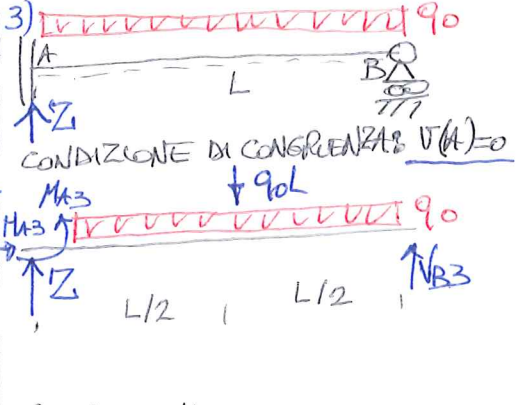 3) q0
A
B
L
Z
CONDIZIONE DI CONGRUENZA: V(A)=0
q0L
MA3
HA3 q0
Z VB3
L/2 L/2